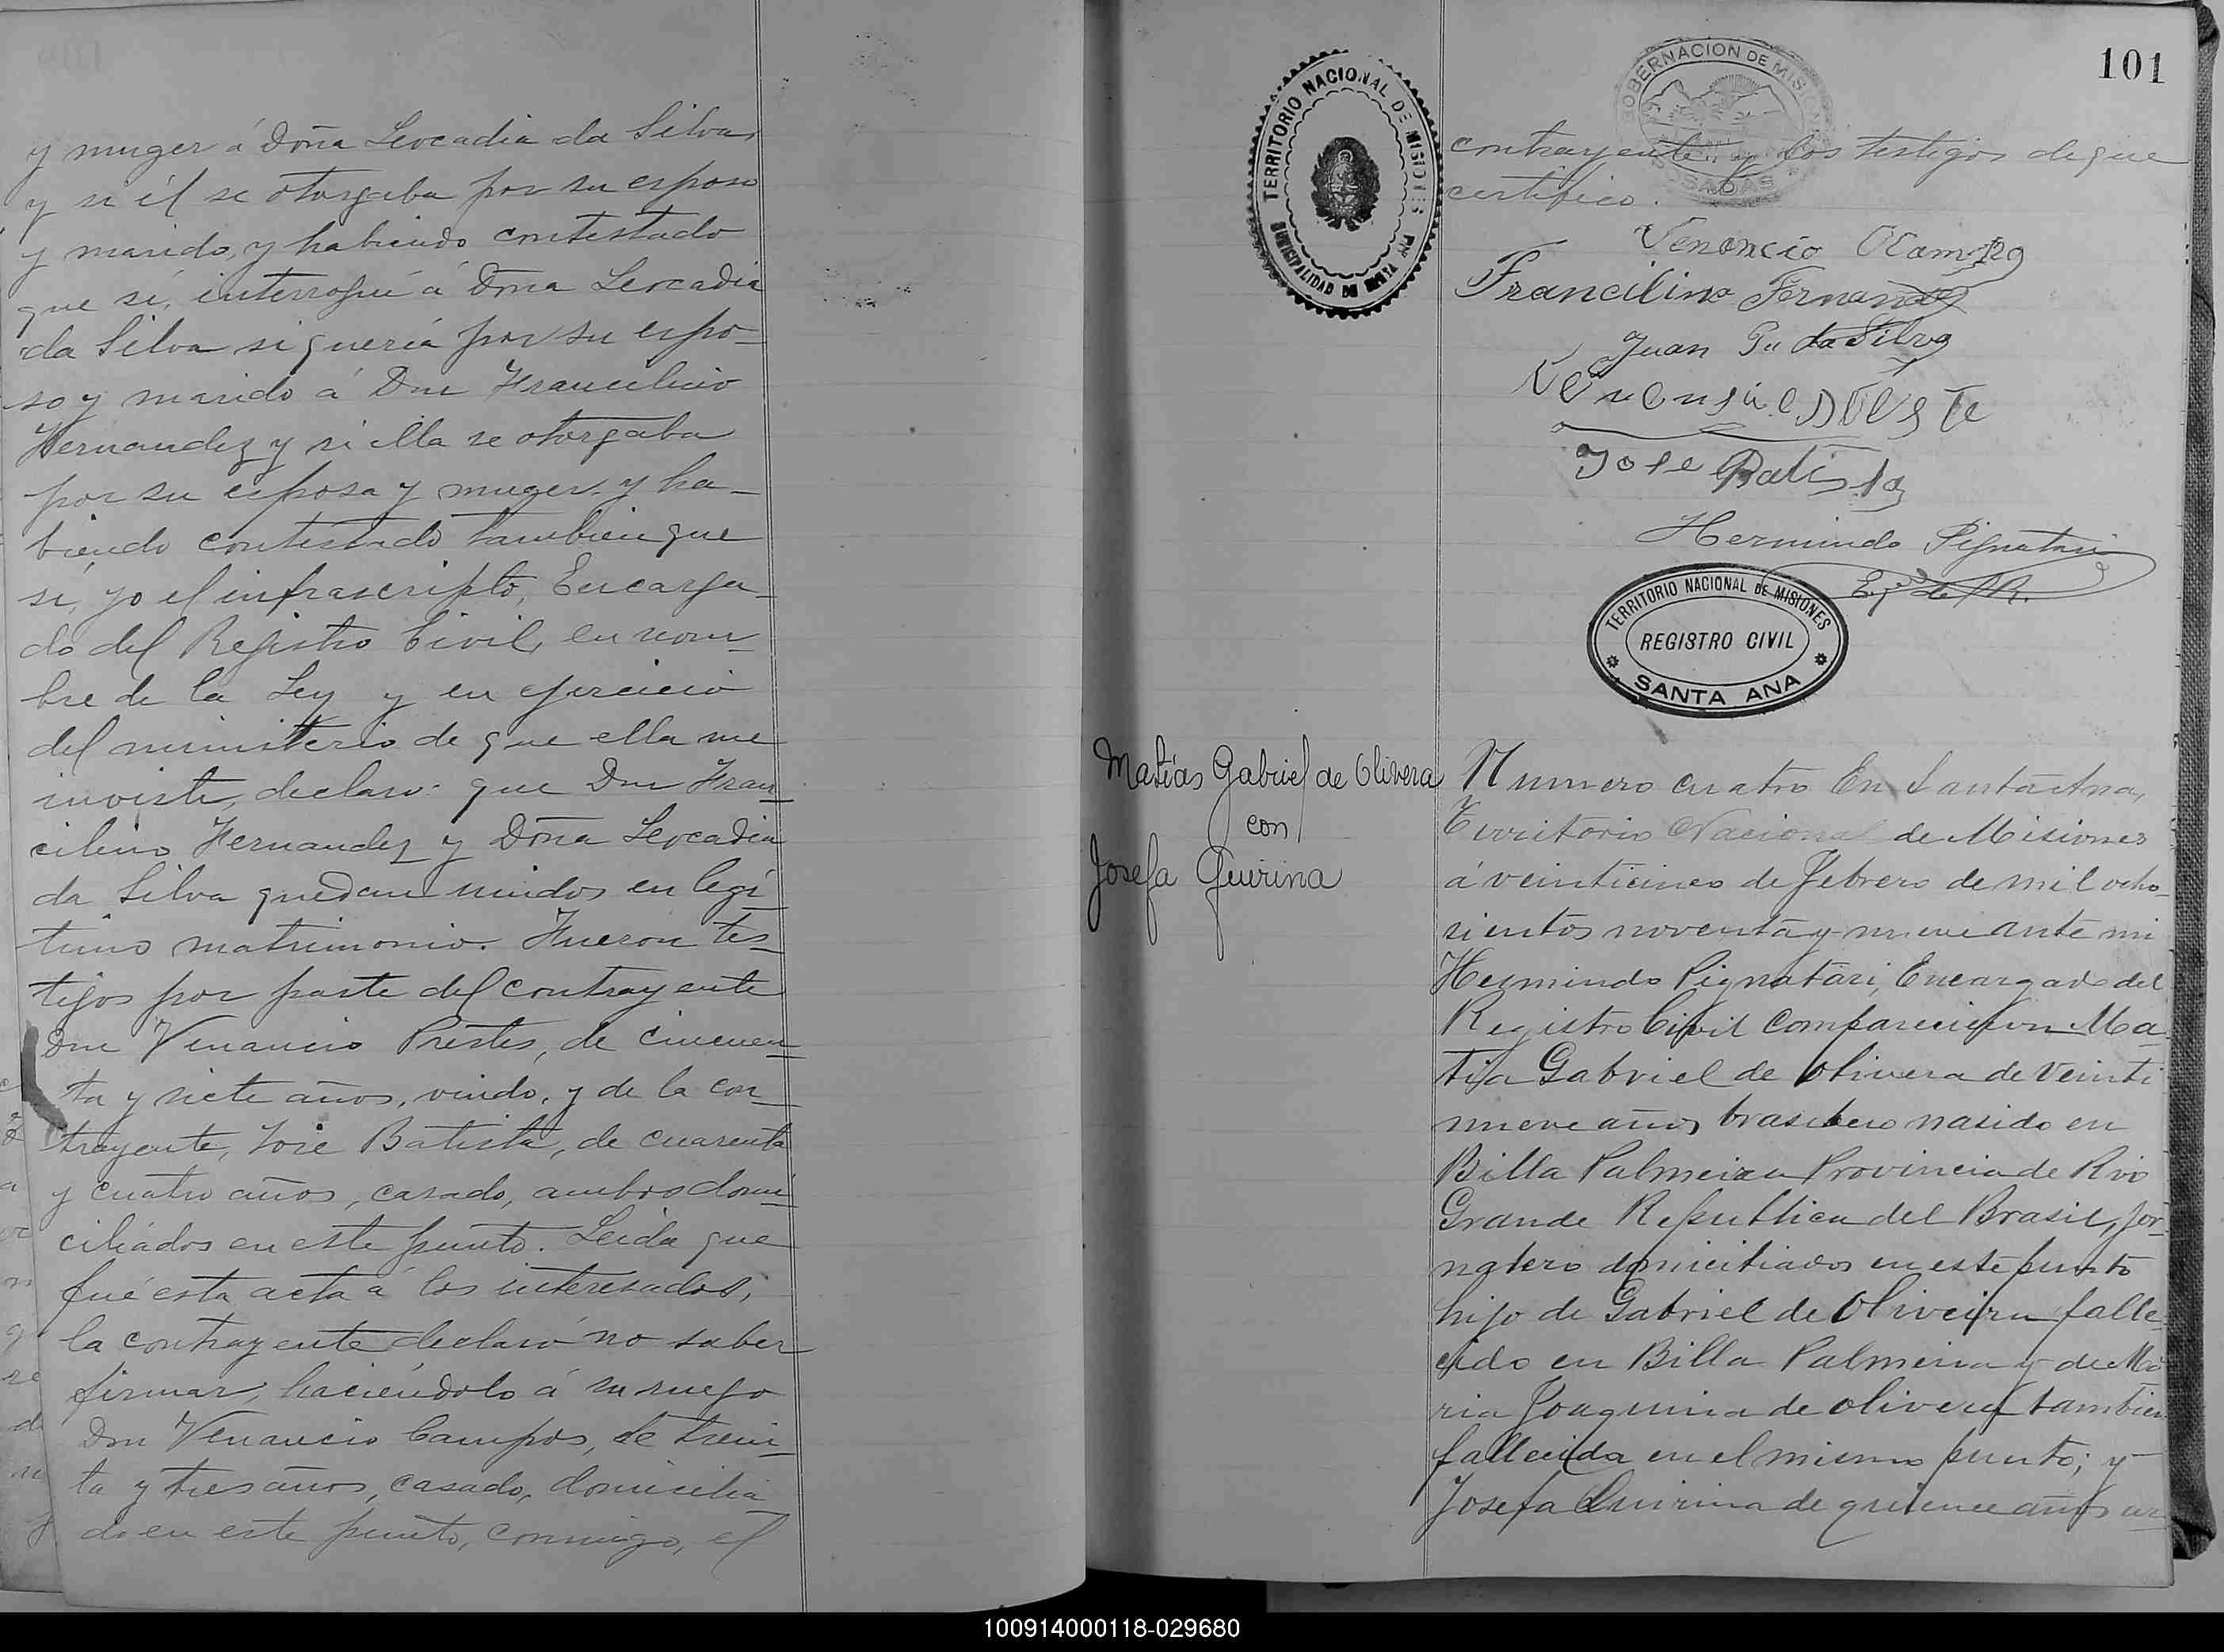 y muger á Doña Leocadia da Silva,
y si él se otorgaba por su esposo
y marido, y habiendo contestado
que sí, interrogué á Doña Leocadia
da Silva si quería por su espo-
so y marido á Don Francilino
Fernandez y si ella se otorgaba
por su esposa y muger, y ha-
biendo contestado tambien que
sí, yo el infrascripto, Encarga-
do del Registro Civil, en nom-
bre de la Ley y en ejercicio
del ministerio de que ella me
inviste, declaro: que Don Fran-
cilino Fernandez y Doña Leocadia
da Silva quedan unidos en legí-
timo matrimonio. Fueron tes-
tigos por parte del contrayente
Don Venancio Prestes, de cincuen-
ta y siete años, viudo, y de la con-
trayente, José Batista, de cuarenta
y cuatro años, casado, ambos domi-
ciliados en este punto. Leida que
fué esta acta á los interesados,
la contrayente declaró no saber
firmar, haciéndolo á su ruego
Don Venancio Campos, de trein-
ta y tres años, casado, domicilia
do en este punto, conmigo, el
101
GOBERNACION DE MISIONES
POSADAS
TERRITORIO NACIONAL DE MISIONES
MUNICIPALIDAD DE SANTA ANA
contrayente y los testigos de que
certifico.
Venancio Campo
Francilino Fernandez
Juan da Silva
Jose Batista
Hermindo Pignatari
E. de R.
TERRITORIO NACIONAL DE MISIONES
REGISTRO CIVIL
SANTA ANA
Matías Gabriel de Olivera
con
Josefa Quirina
Numero cuatro En Santa Ana,
Territorio Nacional de Misiones
á veinticinco de Febrero de mil ocho-
sientos noventa y nueve ante mi
Hermindo Pignatari, Encargado del
Registro Civil comparecieron Ma-
tia Gabriel de Olivera de veinti
nueve años brasilero nasido en
Billa Palmeira Provincia de Rio
Grande Republica del Brasil, jor-
nalero domiciliados en este punto
hijo de Gabriel de Oliveira falle-
cido en Billa Palmeira y de Ma-
ria Joaquina de Olivera tambien
fallecida en el mismo punto; y
Josefa Quirina de quience años ar-